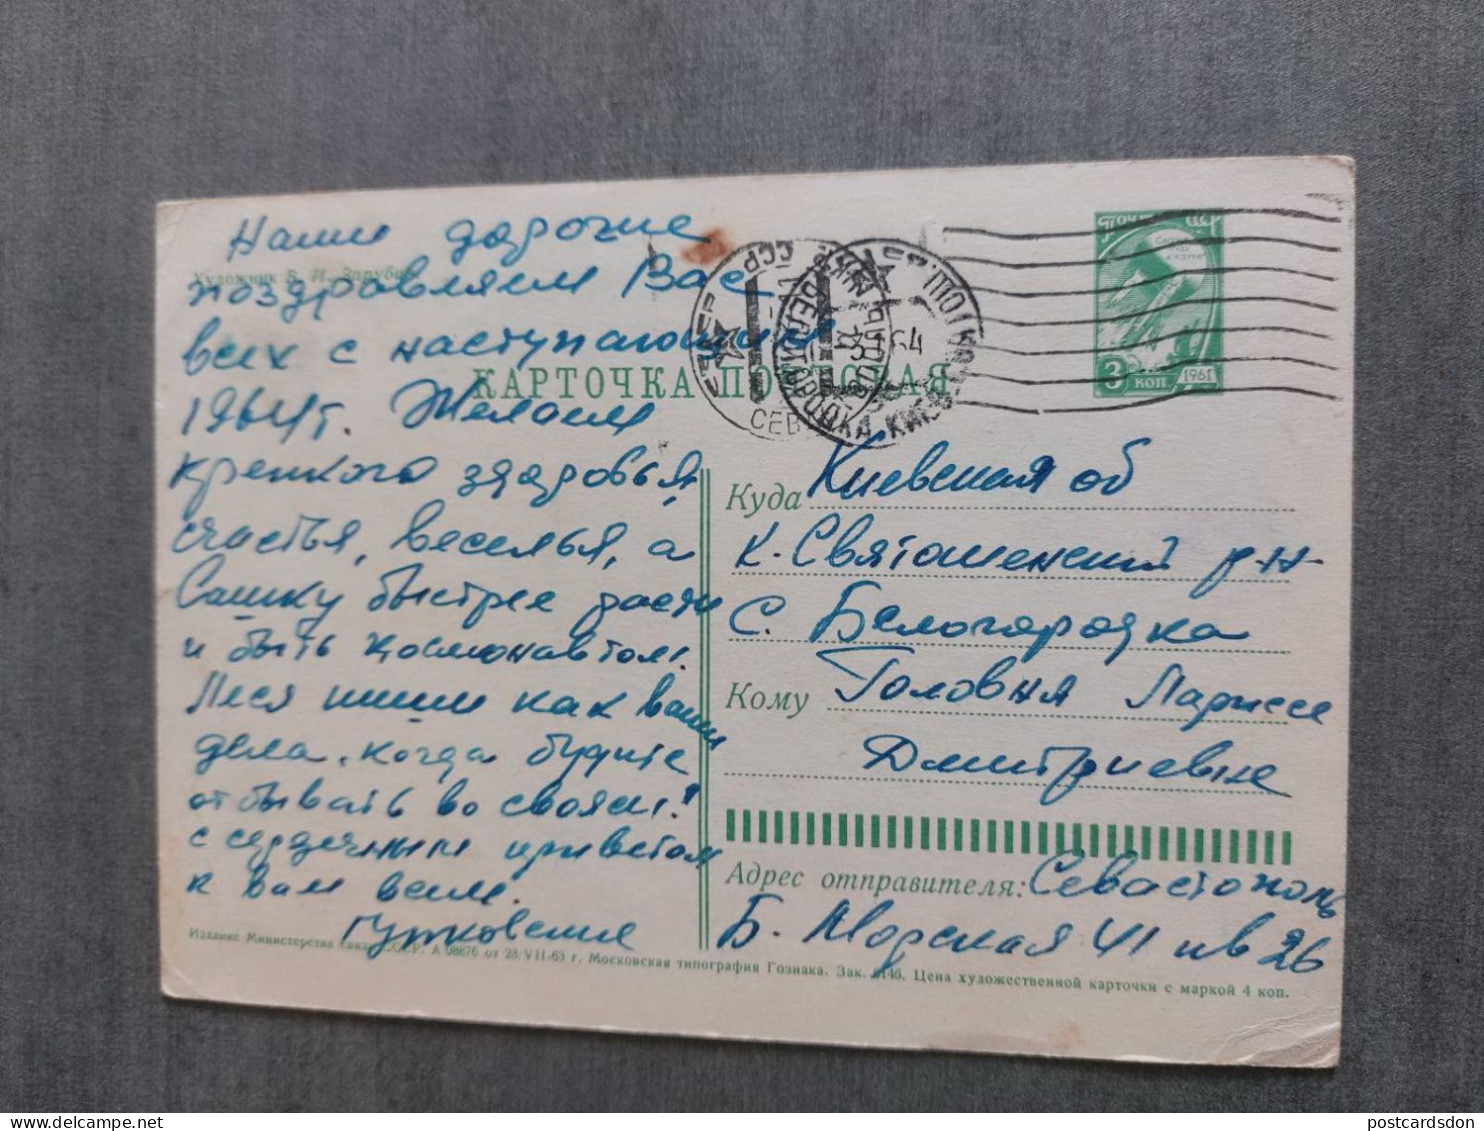 Наши дорогие
Художник В. И. Зарубин
поздравляем Вас
всех с наступающим
1964 г. Желаем
крепкого здоровья,
счастья, веселья, а
Сашку быстрее расти
и быть космонавтом.
Леся пиши как ваши
дела. Когда будите
отбывать во свояси!
с сердечным приветом
к вам всем.
Гутковские
КАРТОЧКА ПОЧТОВАЯ
3 коп 1961
64
Куда Киевская об
К. Святошенский р-н
с. Белогородка
Кому Головня Ларисе
Дмитриевне
Адрес отправителя: Севастополь
Б. Морская 41 кв 26
Издание Министерства связи СССР. А 08876 от 23/VII-63 г. Московская типография Гознака. Зак. 6146. Цена художественной карточки с маркой 4 коп.
postcardsdon